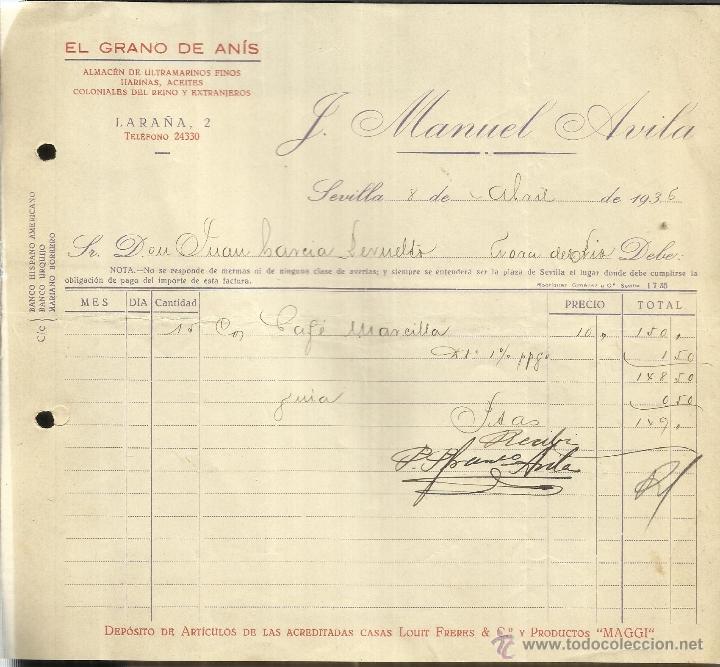 EL GRANO DE ANÍS
ALMACÉN DE ULTRAMARINOS FINOS
HARINAS, ACEITES
COLONIALES DEL REINO Y EXTRANJEROS
LARAÑA, 2
TELÉFONO 24330
J. Manuel Avila
Sevilla 8 de Abril de 1936
Sr. Don Juan Garcia Lora del Rio Debe:
NOTA.—No se responde de mermas ni de ninguna clase de averías; y siempre se entenderá ser la plaza de Sevilla el lugar donde debe cumplirse la
obligación de pago del importe de esta factura.
Rodríguez, Giménez y Cª Sevilla 1735
C/c BANCO HISPANO AMERICANO
BANCO URQUIJO
MARIANO BORRERO
MES DÍA Cantidad PRECIO TOTAL
15 Café Marcilla 10, 150,
1% ppgo 1 50
148 50
guia 0 50
Ptas 149,
Recibi
P. Avila
DEPÓSITO DE ARTÍCULOS DE LAS ACREDITADAS CASAS LOUIT FRERES & Cº Y PRODUCTOS "MAGGI"
todocoleccion.net